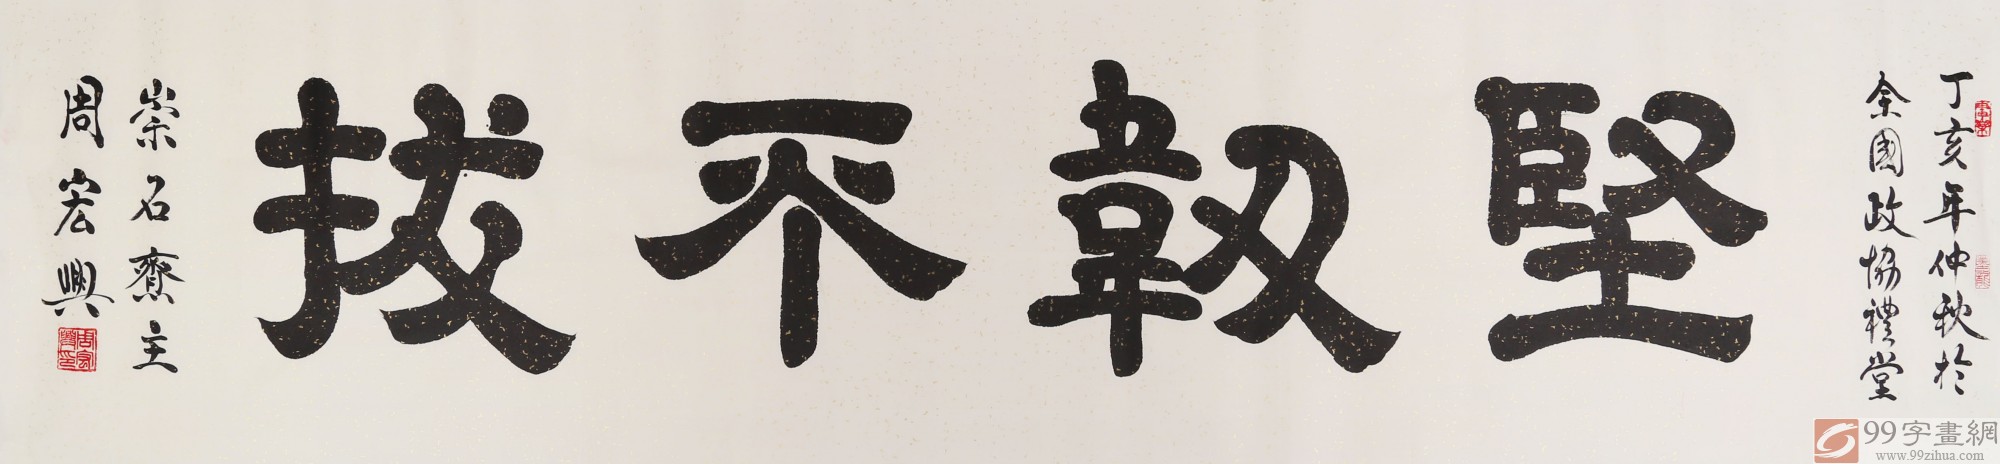 丁亥年仲秋於
全國政協禮堂
堅韌不拔
崇石齋主
周宏興
99字畫網
www.99zihua.com